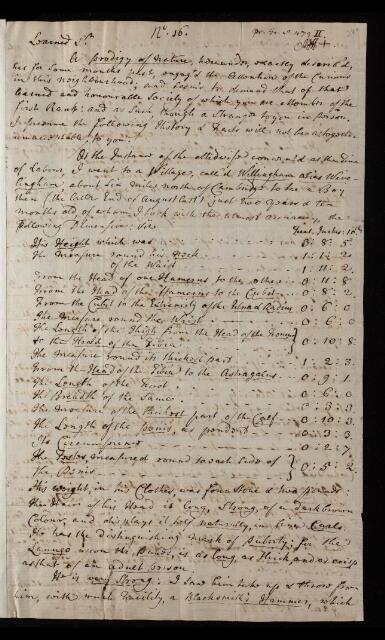 No. 16.
Learned Sr.
A prodigy of Nature, hereunder exactly described,
has for some months past, engag'd the Attention of the Curious
in this neighbourhood; and seems to demand that of that
learned and honourable Society of which you are a Member of the
first Rank: and as such, though a Stranger to you in person,
I presume the following History & Facts will not be altogether
unacceptable to you.
At the Instance of the
of Labour, I went to a Village, call'd Willingham alias Wive-
lingham, about six miles north of Cambridge to see a Boy
then (the latter End of August last) just two years & ten
months old, of whom I took with the utmost accuracy, the
following Dimensions: viz
Feet. Inches: 10ths
His Height which was 3: 8: 5
The Measure round his Neck 1: 1: 2
of the Waist 1: 11: 2
From the Head of one Humerus to the other 0: 11: 8
From the Head of the Humerus to the Cubit 0: 8: 2
From the Cubit to the Extremity of the Ulna & Radius 0: 6: 0
The Measure round the Wrist 0: 6: 0
The Length of the Thigh from the Head of the Femur
to the Head of the Tibia 0: 10: 8
The Measure round its thickest part 1: 2: 3
From the Head of the Tibia to the Astragalus 0: 9: 1
The Length of the Foot 0: 6: 0
The Breadth of the Same 0: 3: 0
The Measure of the thickest part of the Calf 0: 10: 3
The Length of the Penis, as pendent 0: 3: 3
Its Circumference 0: 2: 7
The Testes, measured round to each side of
the Penis 0: 5: 2
His weight, in his Clothes, was four Stone & two pounds:
The Hair of his Head is long, strong, of a dark brown
Colour, and displays it self naturally, in fine Curls:
He has the distinguishing mark of Puberty; for the
Lanugo upon the Pubes, is as long, as thick, and as crisp
as that of an adult person.
He is very strong: I saw him take up & throw from
him, with much facility, a Blacksmith's Hammer, which